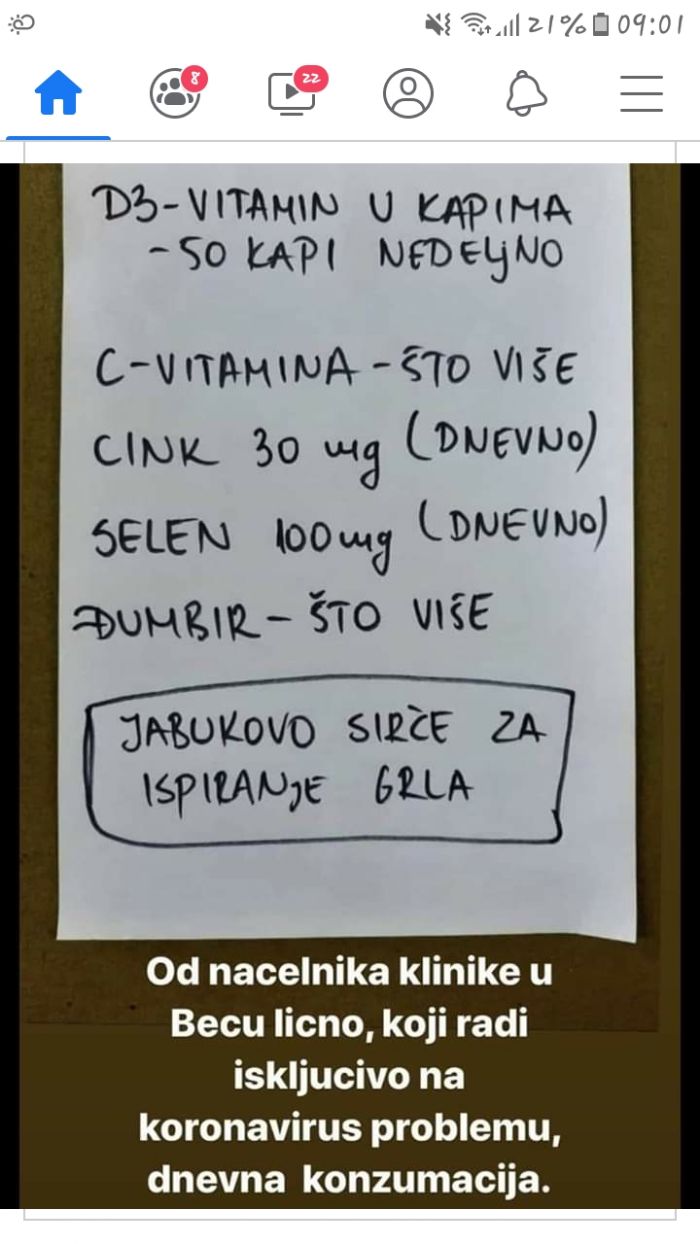 21% 09:01
8 22
D3-VITAMIN U KAPIMA
-50 KAPI NEDELJNO
C-VITAMINA-ŠTO VIŠE
CINK 30 mg (DNEVNO)
SELEN 100mg (DNEVNO)
ĐUMBIR-ŠTO VIŠE
JABUKOVO SIRČE ZA
ISPIRANJE GRLA
Od nacelnika klinike u
Becu licno, koji radi
iskljucivo na
koronavirus problemu,
dnevna konzumacija.